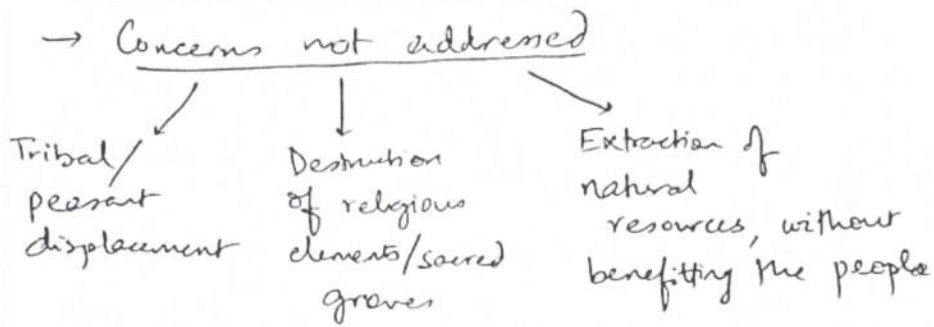 → Concerns not addressed
Tribal/
peasant
displacement
Destruction
of religious
elements/sacred
groves
Extraction of
natural
resources, without
benefitting the people